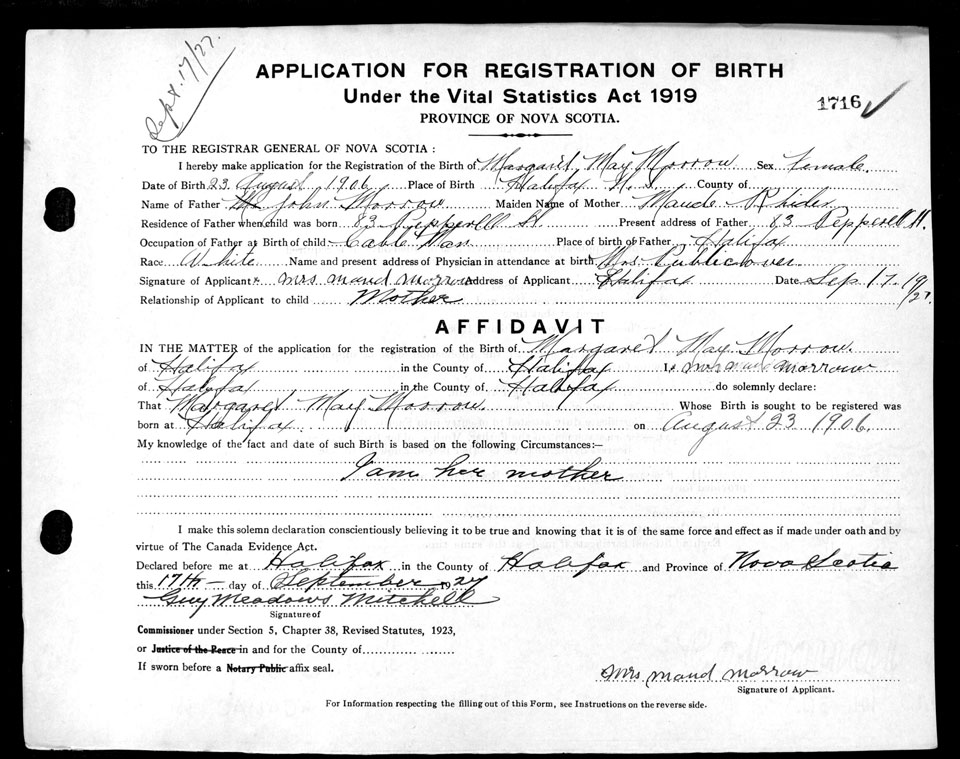 Sept. 17/27.
APPLICATION FOR REGISTRATION OF BIRTH
Under the Vital Statistics Act 1919
1716 ✓
PROVINCE OF NOVA SCOTIA.
TO THE REGISTRAR GENERAL OF NOVA SCOTIA :
I hereby make application for the Registration of the Birth of Margaret May Morrow Sex female
Date of Birth 23 August 1906 Place of Birth Halifax N. S. County of
Name of Father John Morrow Maiden Name of Mother Maude
Residence of Father when child was born 83 Pepperell St. Present address of Father 83 Pepperell St.
Occupation of Father at Birth of child Cable Man Place of birth of Father Halifax
Race White Name and present address of Physician in attendance at birth Mrs. Publicover
Signature of Applicant mrs maud morrow Address of Applicant Halifax Date Sep 17-19/27
Relationship of Applicant to child Mother
AFFIDAVIT
IN THE MATTER of the application for the registration of the Birth of Margaret May Morrow.
of Halifax in the County of Halifax I, mrs maud morrow
of Halifax in the County of Halifax do solemnly declare:
That Margaret May Morrow. Whose Birth is sought to be registered was
born at Halifax on August 23 1906.
My knowledge of the fact and date of such Birth is based on the following Circumstances:—
I am her mother
I make this solemn declaration conscientiously believing it to be true and knowing that it is of the same force and effect as if made under oath and by
virtue of The Canada Evidence Act.
Declared before me at Halifax in the County of Halifax and Province of Nova Scotia
this 17th day of September 1927
Guy Meadows Mitchell
Signature of
Commissioner under Section 5, Chapter 38, Revised Statutes, 1923,
or Justice of the Peace in and for the County of
If sworn before a Notary Public affix seal.
mrs maud morrow
Signature of Applicant.
For Information respecting the filling out of this Form, see Instructions on the reverse side.